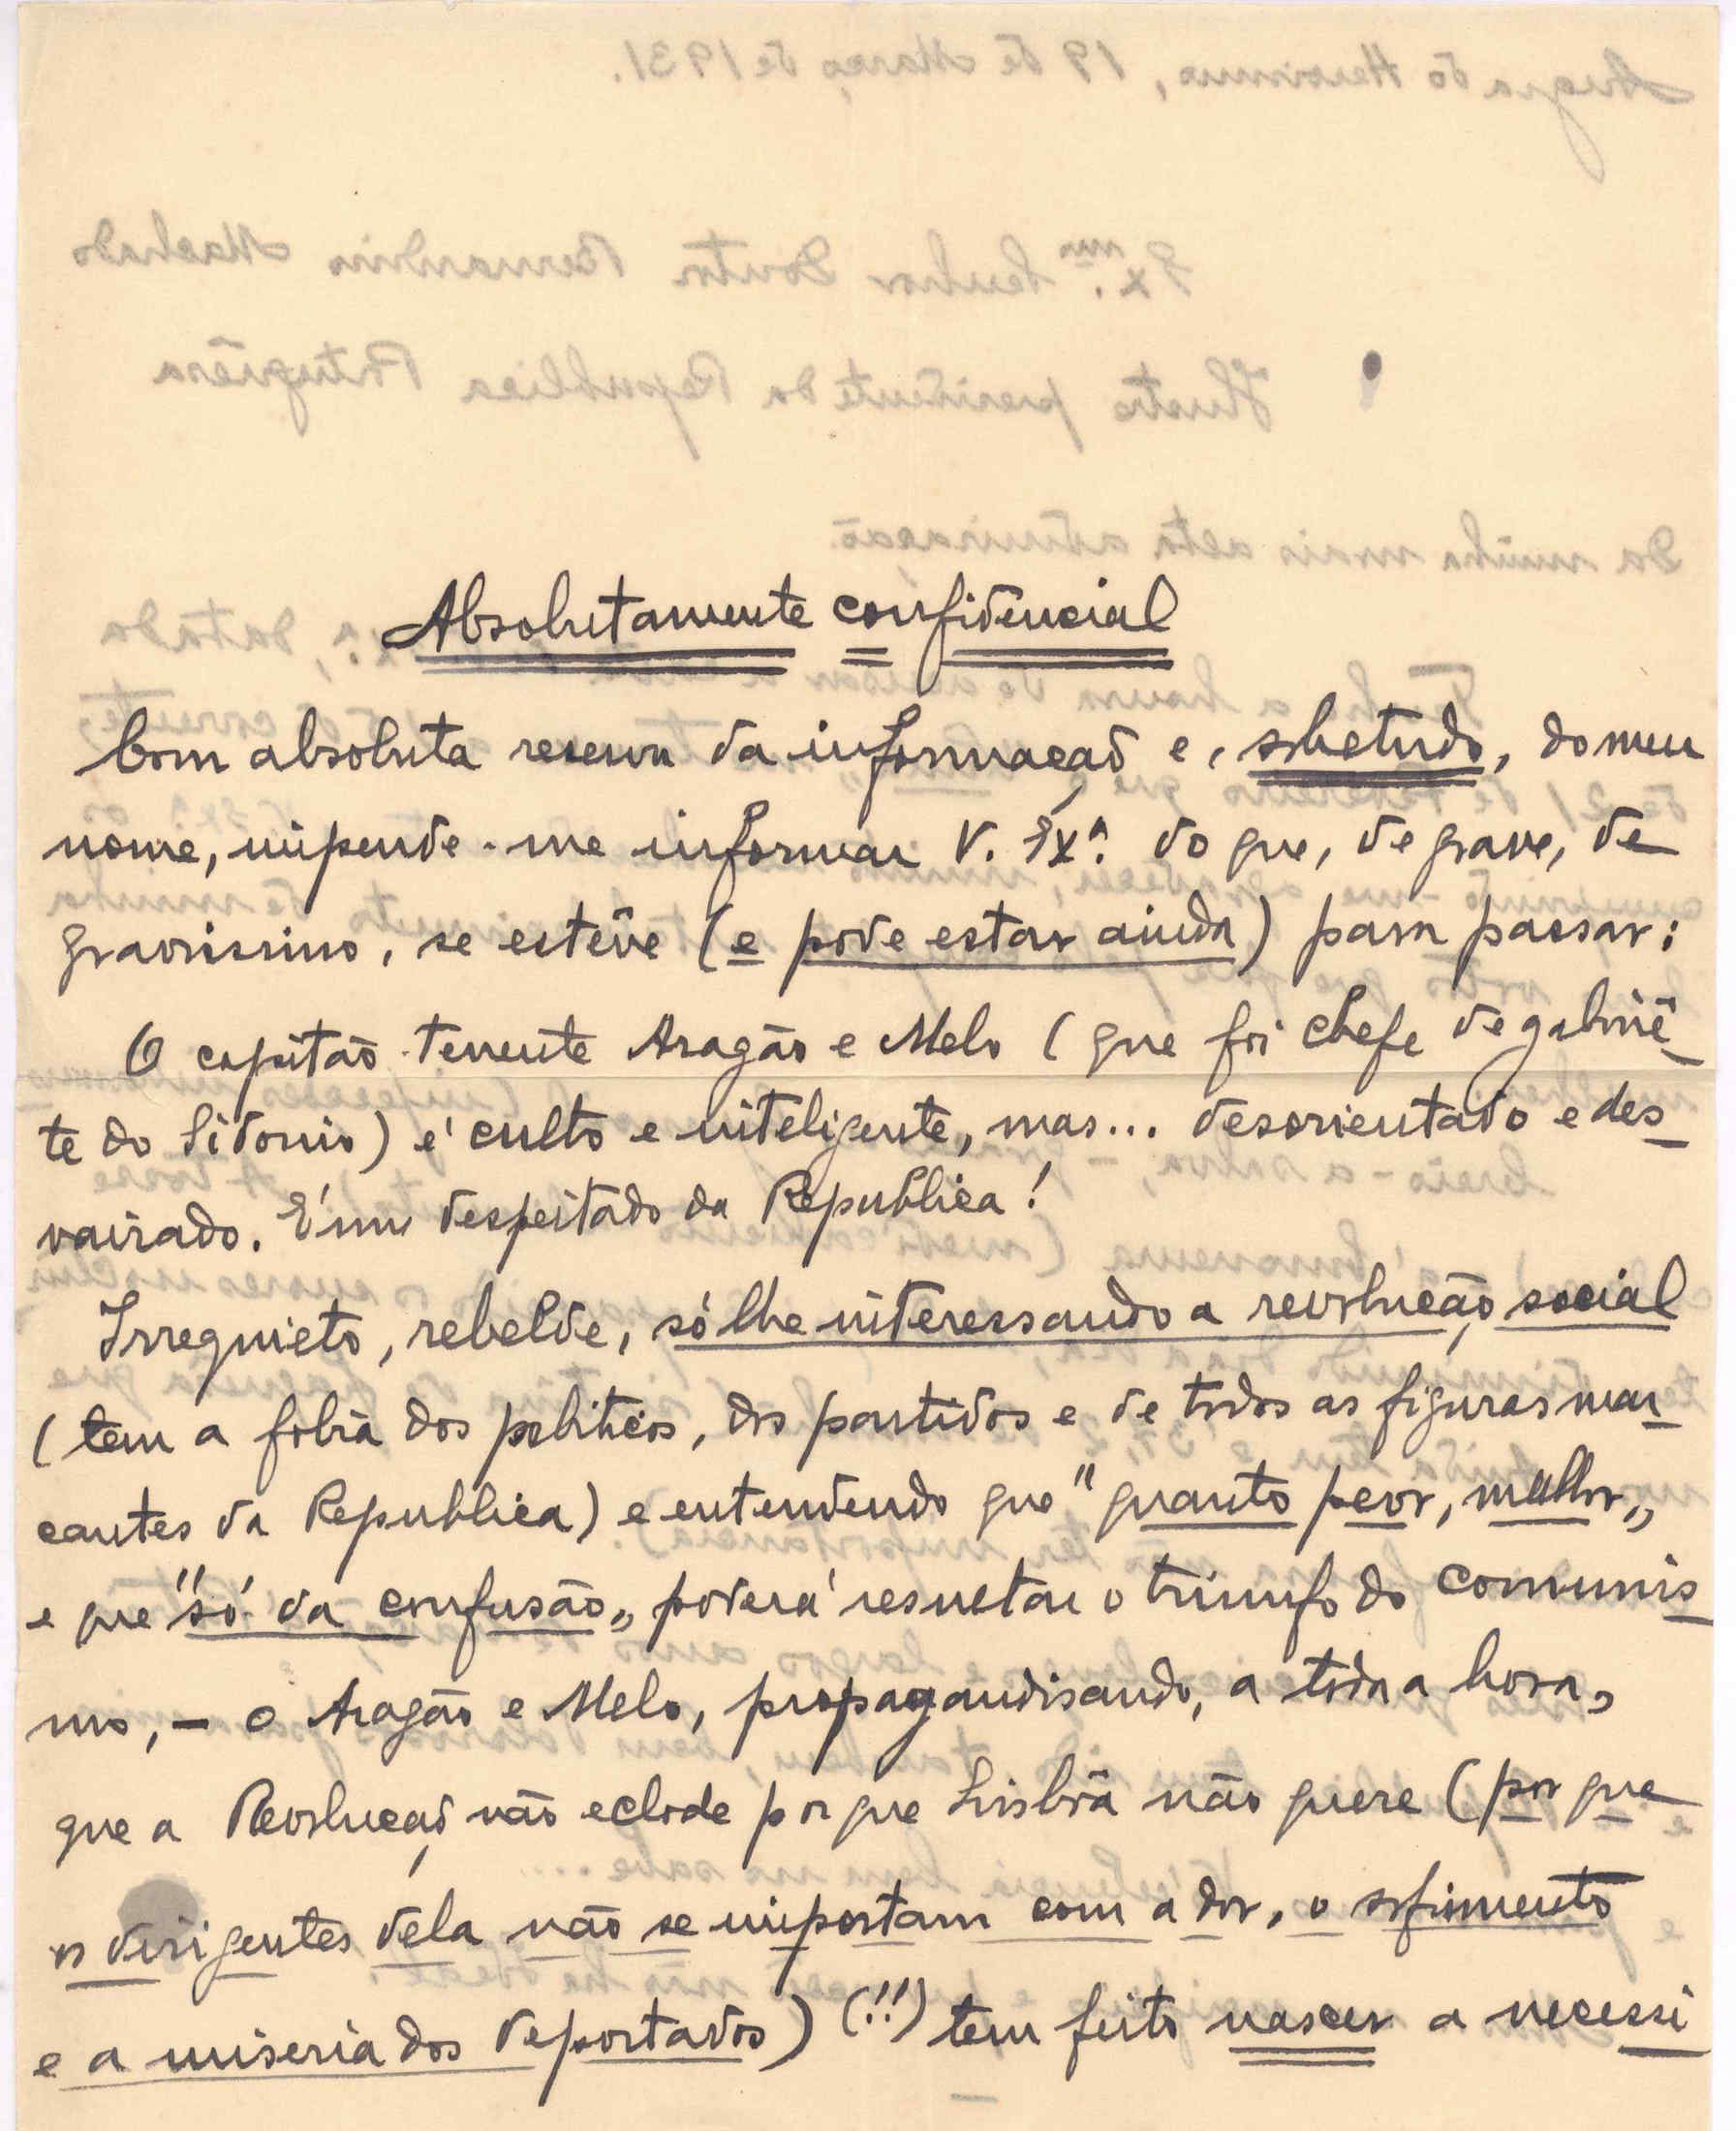 Absolutamente confidencial
Com absoluta reserva da informação e, sobretudo, do meu
nome, impende-me informar V. Exª. do que, de grave, de
gravissimo, se estêve (e pode estar ainda) para passar:
O capitão-tenente Aragão e Melo (que foi chefe de gabinê-
te do Sidonio) é culto e inteligente, mas... desorientado e des-
vairado. É um despeitado da Republica!
Irrequieto, rebelde, só lhe interessando a revolução social
(tem a fobia dos politicos, dos partidos e de todos as figuras mar-
cantes da Republica) e entendendo que "quanto peor, melhor„
e que "só da confusão„ poderá resultar o triunfo do comunis-
mo, - o Aragão e Melo, propagandisando, a toda a hora,
que a Revolução não eclode porque Lisbôa não quere (por que
os dirigentes dela não se importam com a dor, o sofrimento
e a miseria dos deportados) (!!) tem feito nascer a necessi-